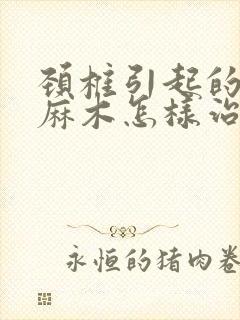 頸椎引起的
麻木怎樣治
永恒的猪肉卷